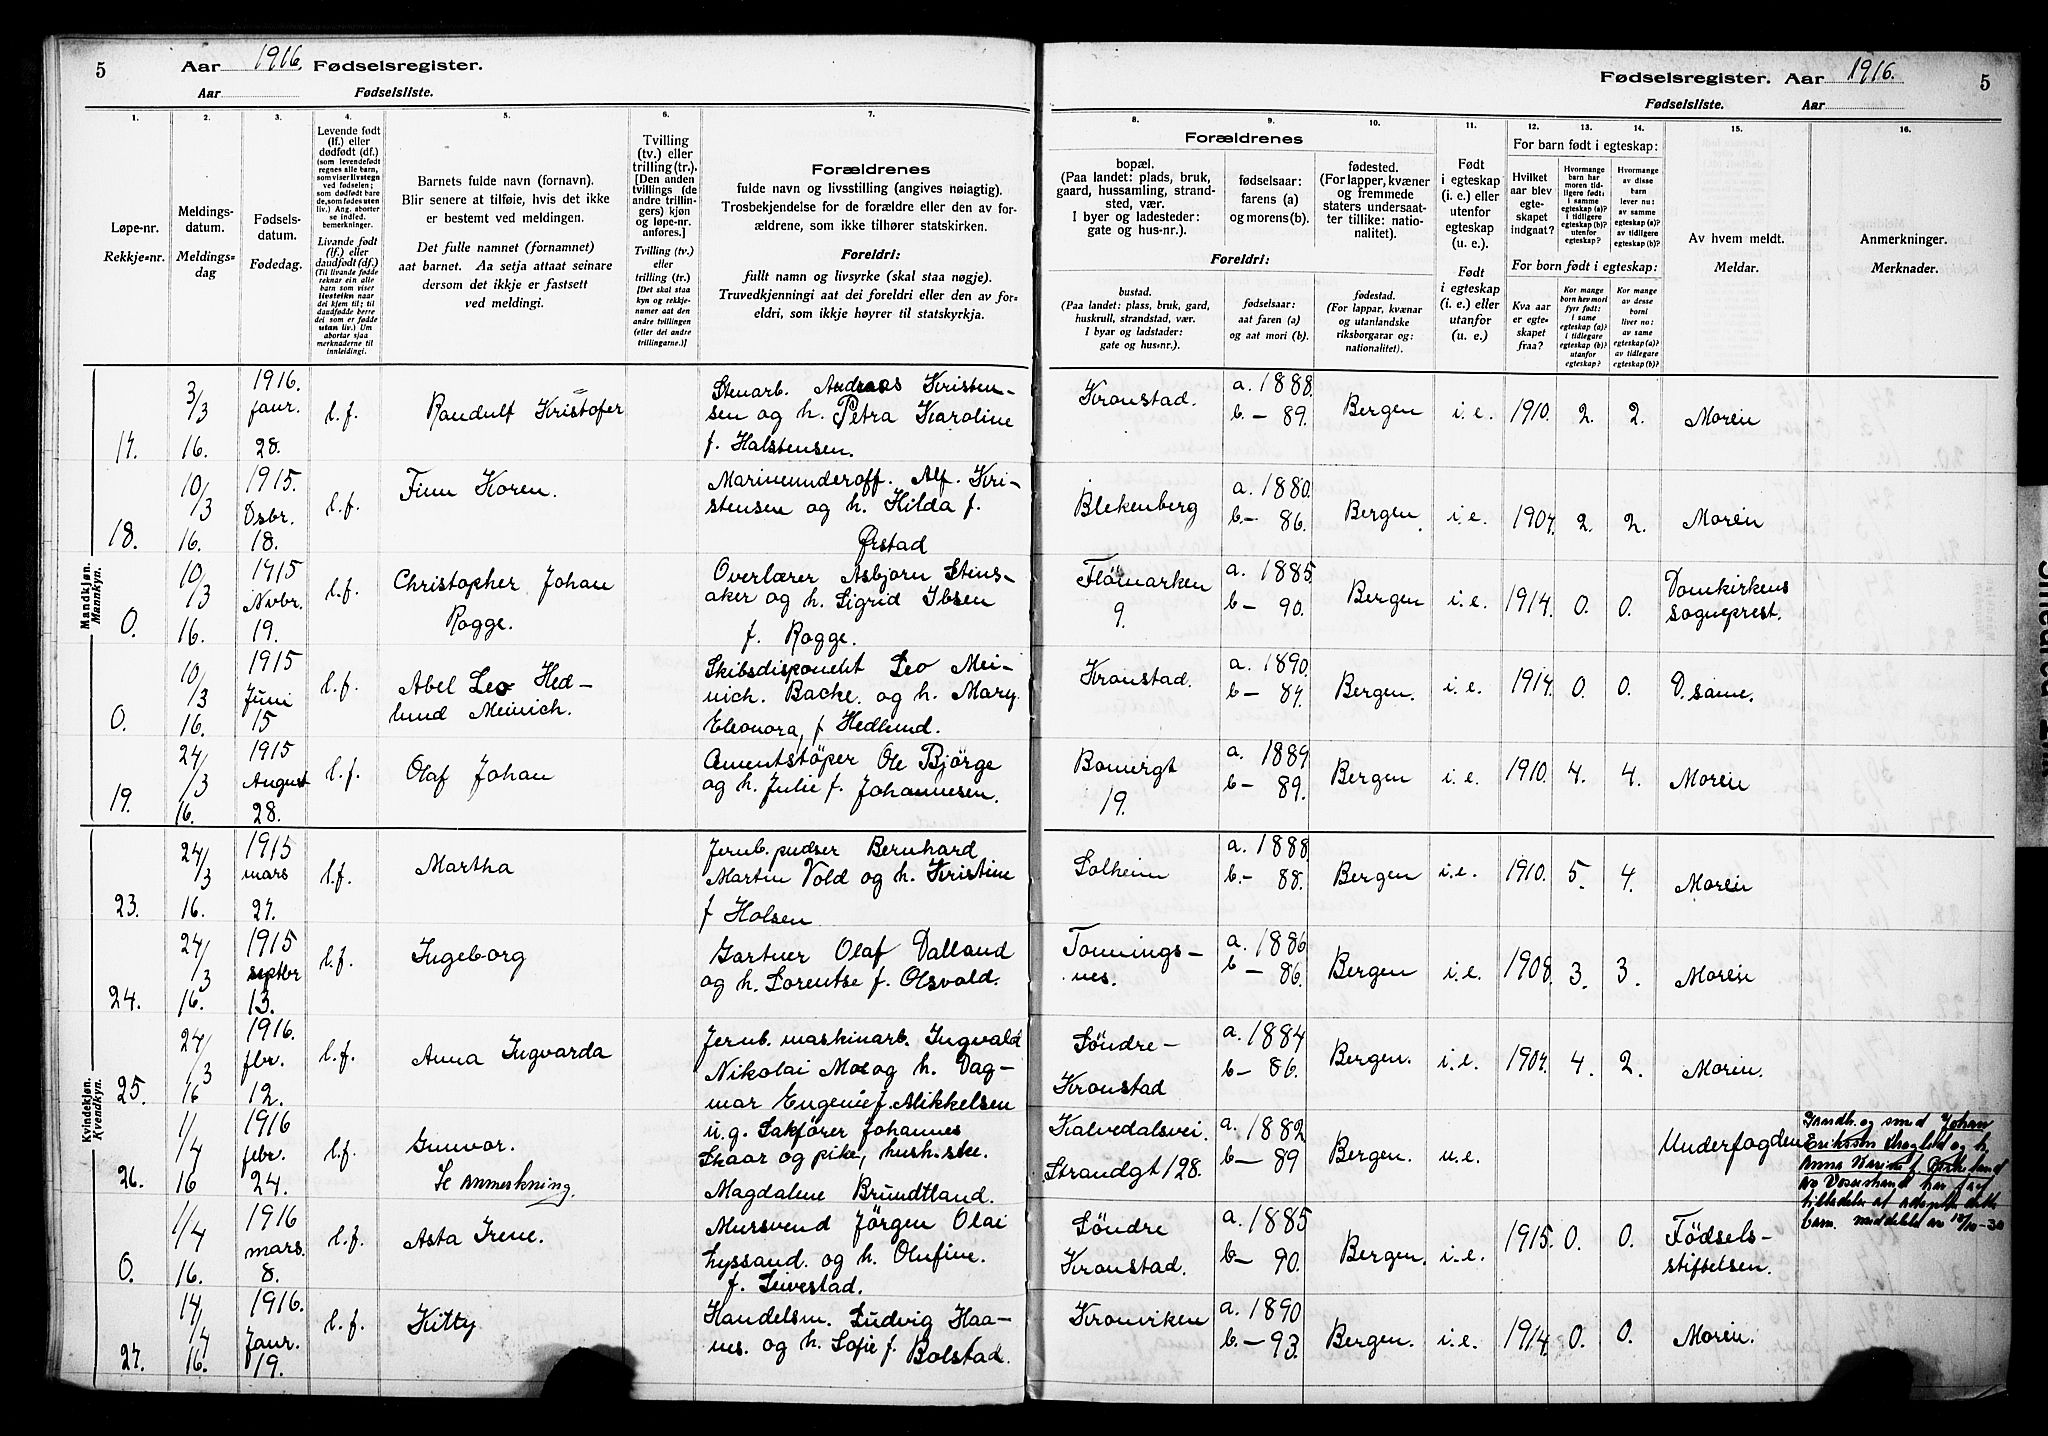 5
Aar 1916. Fødselsregister.
Aar Fødselsliste.
1.
2.
3.
4.
5.
6.
7.
Løpe-nr.
Rekkje-nr.
Meldings-
datum.
Meldings-
dag
Fødsels-
datum.
Fødedag.
Levende født
(lf.) eller
dødfødt (df.)
(som levendefødt
regnes alle barn,
som viser livstegn
ved fødselen;
som dødfødt bare
de, som fødes uten
liv.) Ang. aborter
se indled.
bemerkninger.
Livande født
(lf.) eller
daudfødt (df.)
(Til livande fødde
reknar ein alle
barn som viser
livsteikn naar
dei kjem til; til
daudfødde berre
dei som er fødde
utan liv.) Um
abortar sjaa
merknaderne til
innleidingi.
Barnets fulde navn (fornavn).
Blir senere at tilføie, hvis det ikke
er bestemt ved meldingen.
Det fulle namnet (fornamnet)
aat barnet. Aa setja attaat seinare
dersom det ikkje er fastsett
ved meldingi.
Tvilling
(tv.) eller
trilling (tr.).
[Den anden
tvillings (de
andre trillin-
gers) kjøn
og løpe-nr.
anføres.]
Tvilling (tv.)
eller
trilling (tr.)
[Det skal staa
kyn og rekkje-
numer aat den
andre tvillingen
(eller dei andre
trillingarne.)]
Forældrenes
fulde navn og livsstilling (angives nøiagtig).
Trosbekjendelse for de forældre eller den av for-
ældrene, som ikke tilhører statskirken.
Foreldri:
fullt namn og livsyrke (skal staa nøgje).
Truvedkjenningi aat dei foreldri eller den av for-
eldri, som ikkje høyrer til statskyrkja.
Mandkjøn.
Mannkyn.
17.
3/3
16.
1916.
Janr.
28.
l.f.
Randulf Kristofer
Stenarb. Andreas Kristen-
sen og h. Petra Karoline
f. Halstensen.
18.
10/3
16.
1915.
Dsbr.
18.
l.f.
Finn Koren.
Marineunderoff. Alf. Kri-
stensen og h. Hilda f.
Ørstad
0.
10/3
16.
1915
Nvbr.
19.
l.f.
Christopher Johan
Rogge.
Overlærer Asbjørn Stens-
aker og h. Sigrid Ibsen
f. Rogge.
0.
10/3
16.
1915
Juni
15
l.f.
Abel Leo Hed-
lund Meinich.
Skibsdisponent Leo Mei-
nich. Backe. og h. Mary
Eleonora, f Hedlund.
19.
24/3
16.
1915
August
28.
l.f.
Olaf Johan
Cementstöper Ole Bjørge
og h. Julie f. Johannesen.
Kvindekjøn.
Kvendkyn.
23.
24/3
16.
1915
mars
27.
l.f.
Martha
Jernb. pudser Bernhard
Martin Vold og h. Kristine
f Holsen
24.
24/3
16.
1915
septbr
13.
l.f.
Ingeborg
Gartner Olaf Dalland
og h. Lorentse f. Olsvold.
25.
24/3
16
1916.
fbr.
12.
l.f.
Anna Ingvarda
Jernb. maskinarb. Ingvald
Nikolai Mo og h. Dag-
mar Eugenie f. Mikkelsen
26.
1/4
16
1916
febr.
24.
l.f.
Gunvor.
Se anmerkning.
u.g. Sakfører Johannes
Skaar og pike, hush. ske.
Magdalene Brundtland.
0.
1/4
16.
1916
mars.
8.
l.f.
Asta Irene.
Mursvend Jörgen Olai
Lyssand. og h. Olufine.
f. Leivestad.
27.
14/4
16.
1916.
Janr.
19.
l.f.
Kitty
Handelsm. Ludvig Haa-
nes. og h. Sofie f. Bolstad.
Fødselsregister. Aar 1916.
5
Fødselsliste. Aar
8.
9.
10.
11.
12.
13.
14.
15.
16.
Forældrenes
bopæl.
(Paa landet: plads, bruk,
gaard, hussamling, strand-
sted, vær.
I byer og ladesteder:
gate og hus-nr.).
fødselsaar:
farens (a)
og morens (b).
fødested.
(For lapper, kvæner
og fremmede
staters undersaat-
ter tillike: natio-
nalitet).
Foreldri:
bustad.
(Paa landet: plass, bruk, gard,
huskrull, strandstad, vær.
I byar og ladstader:
gate og hus-nr.).
fødselsaar:
aat faren (a)
og aat mori (b).
fødestad.
(For lappar, kvænar
og utanlandske
riksborgarar og:
nationalitet).
Født
i egteskap
(i. e.) eller
utenfor
egteskap
(u. e.).
Født
i egteskap
(i. e.) eller
utanfor
(u. e.).
For barn født i egteskap:
Hvilket
aar blev
egte-
skapet
indgaat?
Hvormange
barn har
moren tid-
ligere født:
i samme
egteskap (a)?
i tidligere
egteskap (b)?
utenfor
egteskap?
Hvormange
av disse
barn
lever nu:
av samme
egteskap (a)?
av tidligere
egteskap (b)?
For born født i egteskap:
Kva aar
er egte-
skapet
fraa?
Kor mange
born hev mori
fyrr født:
i same
egteskap (a)?
i tidlegare
egteskap (b)?
utanfor
egteskap?
Kor mange
av desse
borni
liver no:
av same
egteskap (a)?
av tidlegare
egteskap (b)?
Av hvem meldt.
Meldar.
Anmerkninger.
Merknader.
Kronstad.
a. 1888.
b – 89.
Bergen
i.e.
1910.
2.
2.
Moren
Blekenberg
a. 1880.
b – 86.
Bergen
i.e.
1907.
2.
2.
Moren
Flömarken
9.
a. 1885.
b – 90.
Bergen
i.e.
1914.
0.
0.
Domkirkens
sogneprest.
Kronstad.
a. 1890.
b – 87.
Bergen.
i.e.
1914.
0.
0.
D. same.
19.
a. 1889
b – 89.
Bergen
i.e.
1910.
4.
4.
Moren
Solheim
a. 1888.
b. – 88.
Bergen
i.e.
1910.
5.
4.
Moren
Tonnings-
nes.
a. 1886
b – 86.
Bergen
i.e.
1908.
3.
3.
Moren
Söndre-
Kronstad
a. 1884
b – 86.
Bergen.
i.e.
1907.
4.
2.
Moren.
Kalvedalsvei.
Strandgt 128.
a. 1882
b – 89
Bergen.
u.e.
Underfogden
Gaardbr. og smed Johan
Eriksson Skogstad og h.
Anna Karine f.
av Vossestrand har faat
tilladelse at adoptere dette
barn. meddelelse av 18/10-30
Söndre
Kronstad.
a. 1885
b – 90.
Bergen.
i.e.
1915.
0.
0.
Fødsels-
stiftelsen.
Kronviken
a. 1890
b – 93.
Bergen.
i.e.
1914.
0.
0.
Moren.